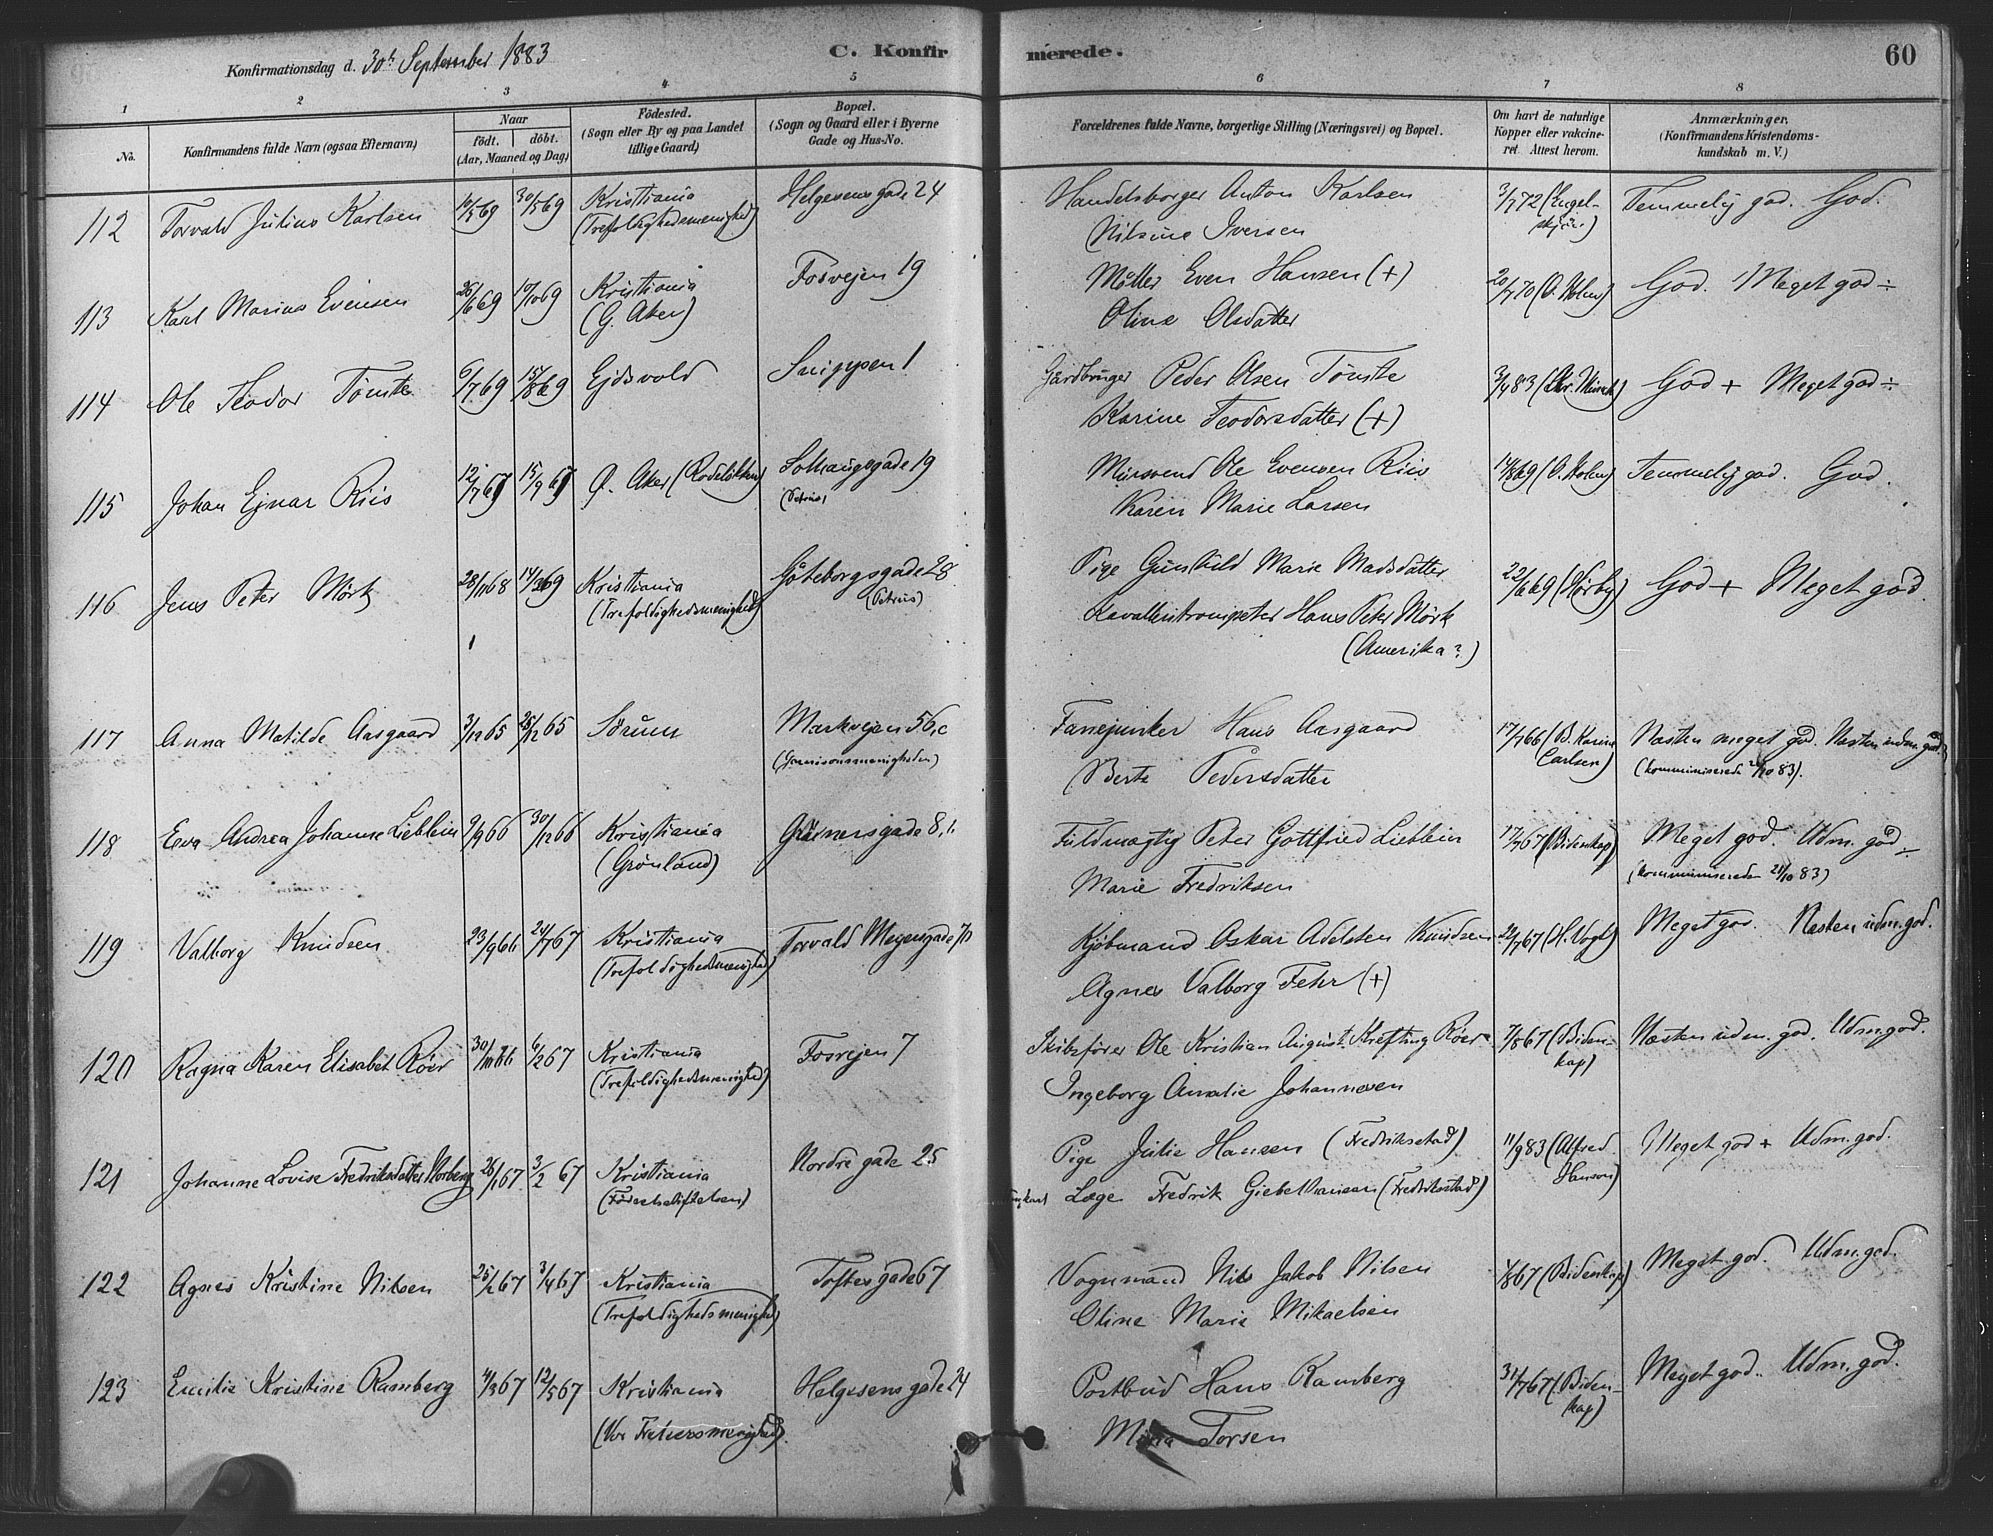 Konfirmationsdag d. 30te September 1883
C. Konfirmerede.
60
1 2 3 4 5 6 7 8
No.
Konfirmandens fulde Navn (ogsaa Efternavn)
Naar
født. døbt.
(Aar, Maaned og Dag)
Fødested.
(Sogn eller By og paa Landet
tillige Gaard)
Bopæl.
(Sogn og Gaard eller i Byerne
Gade og Hus-No.
Forældrenes fulde Navne, borgerlige Stilling (Næringsvei) og Bopæl.
Om havt de naturlige
Kopper eller vakcine-
ret. Attest herom.
Anmærkninger.
(Konfirmandens Kristendoms-
kundskab m. V.)
112 Torvald Julius Karlsen 10/5 69 30/5 69 Kristiania Helgesens gade 24 Handelsborger Anton Karlsen 3/7 72 (Engel- Temmelig god. God.
(Trefoldighedsmenighed) Nilsine Iversen skjøn)
113 Karl Marius Evensen 26/6 69 17/10 69 Kristiania Fosvejen 19 Møller Even Hansen (+) 20/7 70 (O. Holm) God. Meget god ÷
(G. Aker) Oline Olsdatter
114 Ole Teodor Tømte 6/7 69 15/8 69 Ejdsvold Snippen 1 Gårdbruger Peder Olsen Tømte 3/4 83 God + Meget god ÷
Karine Teodorsdatter (+)
115 Johan Ejnar Riis 12/7 67 15/9 67 Ø. Aker (Rodeløkken) Solhaugsgade 19 Mursvend Ole Evensen Riis 14/8 69 (O. Holm) Temmelig god. God.
(Petrus) Karen Marie Larsen
116 Jens Peter Mörk 28/11 68 14/3 69 Kristiania Göteborgsgade 28 Pige Gunhild Marie Madsdatter 22/6 69 (Nørby) God + Meget god.
(Trefoldighedsmenighed) (Petrus) Kavalleritrompeter Hans Peter Mörk
(Amerika?)
117 Anna Matilde Aasgaard 3/12 65 25/12 65 Sørum Markvejen 56,c Fanejunker Hans Aasgaard 17/7 66 (B. Karine Næsten meget god. Næsten udm. god.
(Garnisonsmenigheden) Berte Pedersdatter Carlsen) (kommuniserede 21/10 83).
118 Eva Andrea Johanne Lieblein 9/9 66 30/12 66 Kristiania Grünersgade 8, Fuldmægtig Peter Gottfried Lieblein 17/7 67 (Bidenkap) Meget god. Udm. god ÷
(Grønland) Marie Fredriksen (kommuniserede 21/10 83)
119 Valborg Knudsen 23/9 66 24/7 67 Kristiania Torvald Meyersgade Kjøbmand Oskar Adelsten Knudsen 22/7 67 (H. Vogt) Meget god. Næsten udm. god.
(Trefoldighedsmenighed) Agnes Valborg Fehr (+)
120 Ragna Karen Elisabet Röer 30/10 66 6/2 67 Kristiania Fosvejen 7 Skibsfører Ole Kristian August Krefting Röer 7/8 67 (Biden- Næsten udm. god. Udm. god.
(Trefoldighedsmenighed) Ingeborg Amalie Johannesen kap)
121 Johanne Lovise Fredriksdatter Norberg 26/1 67 3/2 67 Kristiania Nordre gade 25 Pige Julie Hansen (Fredrikstad) 11/9 83 (Alfred Meget god + Udm. god.
(Fødselsstiftelsen) Læge Fredrik Giebelhausen (Fredrikstad) Hanson)
122 Agnes Kristine Nilsen 25/2 67 3/4 67 Kristiania Toftes gade 67 Vognmand Nils Jakob Nilsen 1/8 67 (Bidenkap) Meget god. Udm. god.
(Trefoldighedsmenighed) Oline Marie Mikaelsen
123 Emilie Kristine Ramberg 4/3 67 12/5 67 Kristiania Helgesens gade 24 Postbud Hans Ramberg 31/7 67 (Biden- Meget god. Udm. god.
(Vor Frelsersmenighed). Mina Torsen kap)